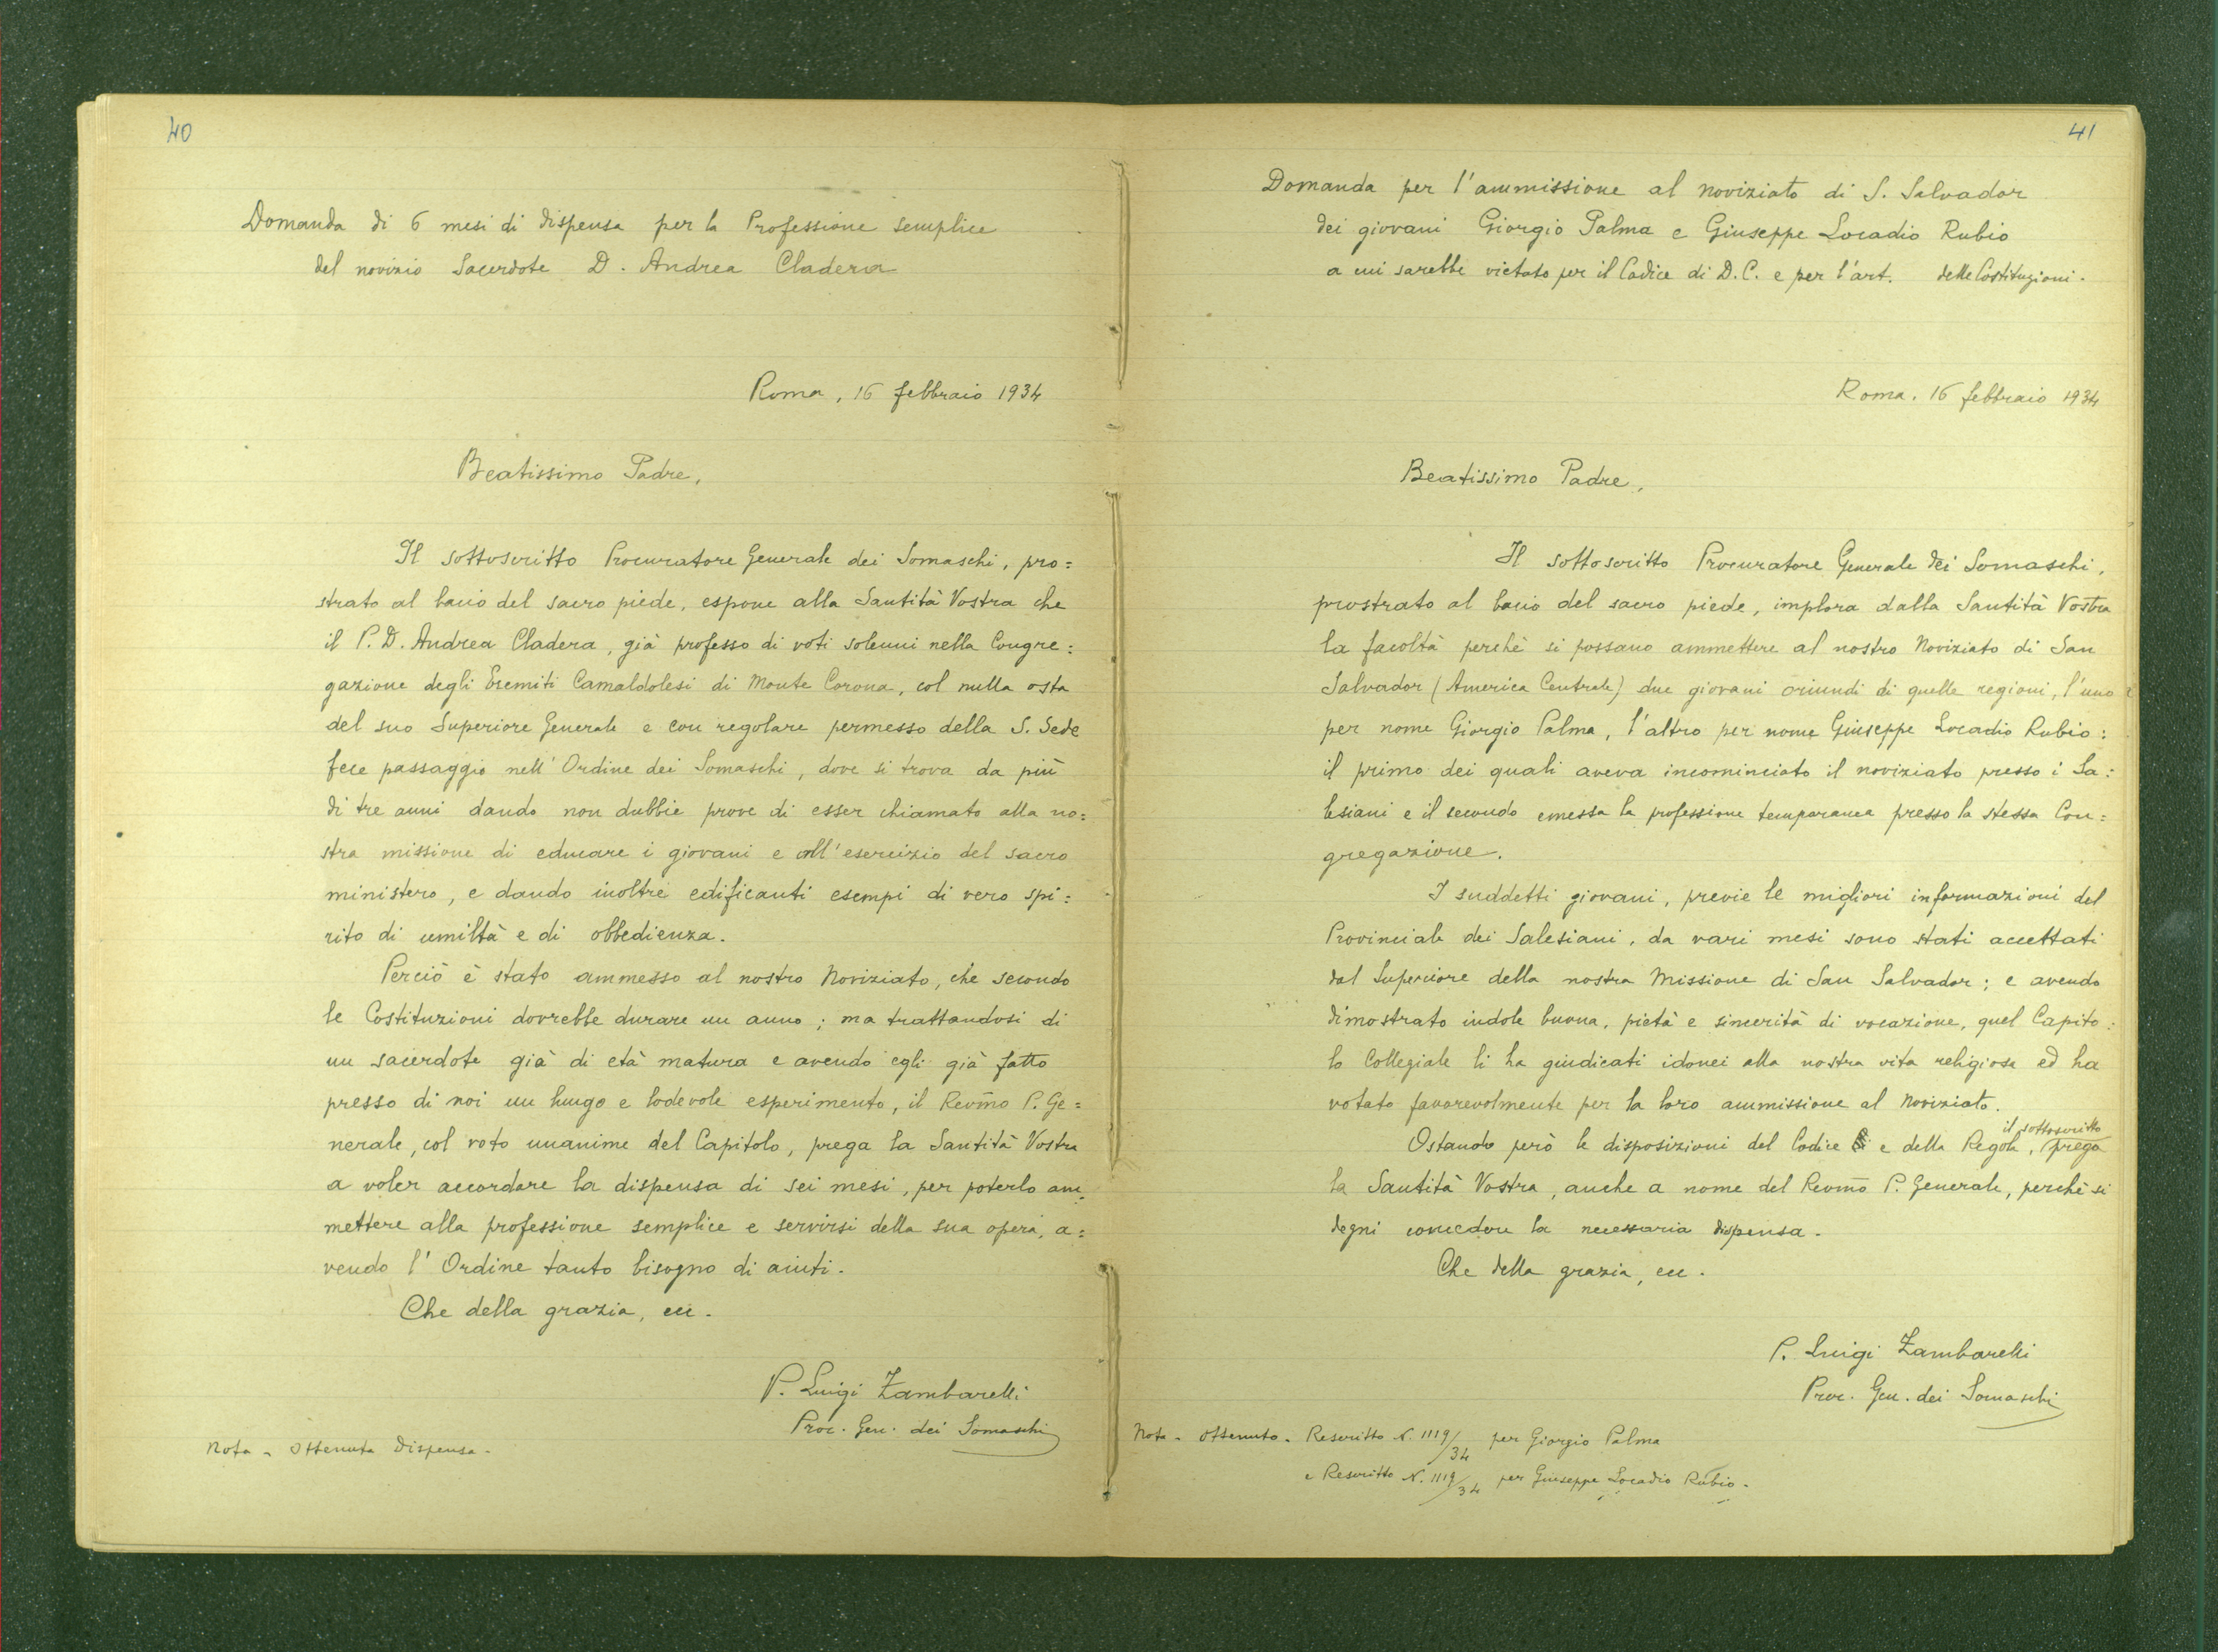 40
Domanda di 6 mesi di dispensa per la Professione semplice
del novizio Sacerdote D. Andrea Cladera
Roma, 16 febbraio 1934
Beatissimo Padre,
Il sottoscritto Procuratore Generale dei Somaschi, pro=
strato al bacio del sacro piede, espone alla Santità Vostra che
il P. D. Andrea Cladera, già professo di voti solenni nella Congre=
gazione degli Eremiti Camaldolesi di Monte Corona, col nulla osta
del suo Superiore Generale e con regolare permesso della S. Sede
fece passaggio nell'Ordine dei Somaschi, dove si trova da più
di tre anni dando non dubbie prove di esser chiamato alla no=
stra missione di educare i giovani e all'esercizio del sacro
ministero, e dando inoltre edificanti esempi di vero spi=
rito di umiltà e di obbedienza.
Perciò è stato ammesso al nostro Noviziato, che secondo
le Costituzioni dovrebbe durare un anno; ma trattandosi di
un sacerdote già di età matura e avendo egli già fatto
presso di noi un lungo e lodevole esperimento, il Revmo P. Ge=
nerale, col voto unanime del Capitolo, prega la Santità Vostra
a voler accordare la dispensa di sei mesi, per poterlo am=
mettere alla professione semplice e servirsi della sua opera, a=
vendo l'Ordine tanto bisogno di aiuti.
Che della grazia, ecc.
P. Luigi Zambarelli
Proc. Gen. dei Somaschi
Nota - Ottenuta dispensa -
41
Domanda per l'ammissione al noviziato di S. Salvador
dei giovani Giorgio Palma e Giuseppe Locadio Rubio
a cui sarebbe vietato per il Codice di D. C. e per l'art. delle Costituzioni.
Roma. 16 febbraio 1934
Beatissimo Padre,
Il sottoscritto Procuratore Generale dei Somaschi,
prostrato al bacio del sacro piede, implora dalla Santità Vostra
la facoltà perchè si possano ammettere al nostro Noviziato di San
Salvador (America Centrale) due giovani oriundi di quelle regioni, l'uno
per nome Giorgio Palma, l'altro per nome Giuseppe Locadio Rubio:
il primo dei quali aveva incominciato il noviziato presso i Sa=
lesiani e il secondo emessa la professione temporanea presso la stessa Con=
gregazione.
I suddetti giovani, previe le migliori informazioni del
Provinciale dei Salesiani, da vari mesi sono stati accettati
dal Superiore della nostra Missione di San Salvador; e avendo
dimostrato indole buona, pietà e sincerità di vocazione, quel Capito=
lo Collegiale li ha giudicati idonei alla nostra vita religiosa ed ha
votato favorevolmente per la loro ammissione al Noviziato.
Ostando però le disposizioni del Codice e della Regola, il sottoscritto prega
la Santità Vostra, anche a nome del Revmo P. Generale, perchè si
degni concedere la necessaria dispensa.
Che della grazia, ecc.
P. Luigi Zambarelli
Proc. Gen. dei Somaschi
Nota - Ottenuto - Rescritto N. 1119/34 per Giorgio Palma
e Rescritto N. 1119/34 per Giuseppe Locadio Rubio -